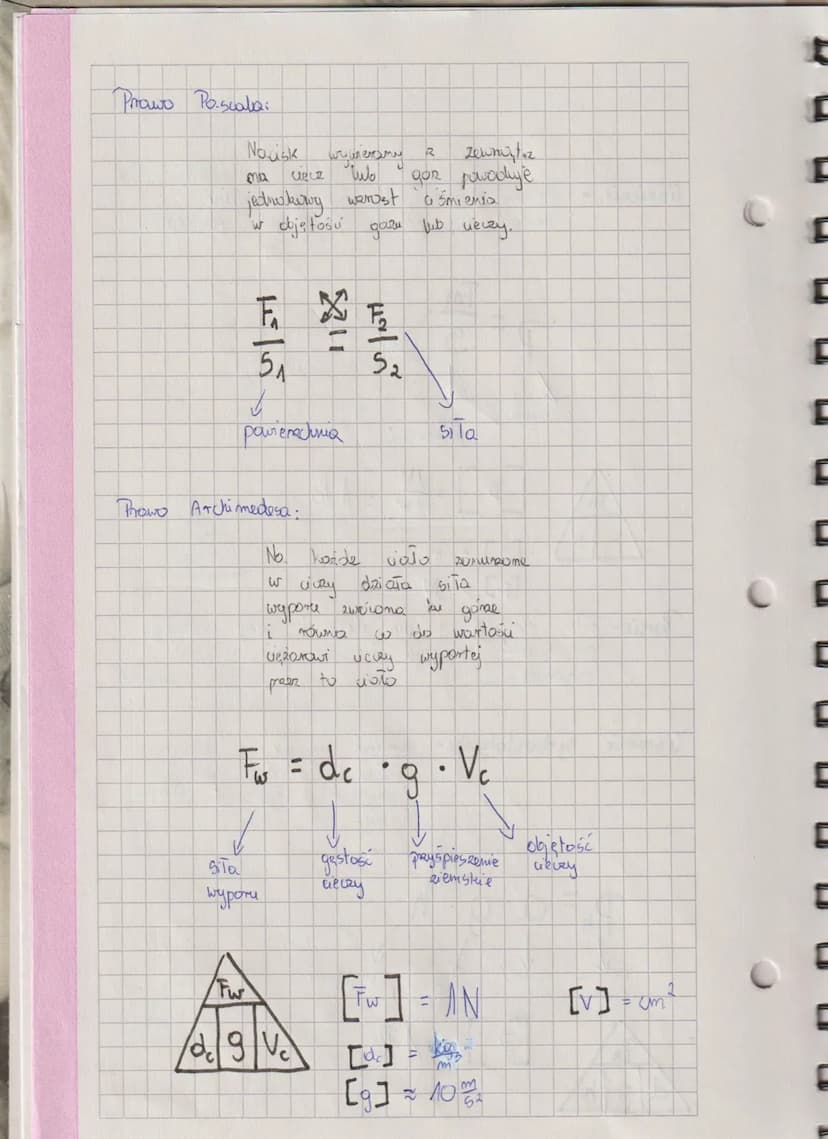 Prawo Pascala:
Nacisk wywierany z zewnątrz
na ciecz lub gaz powoduje
jednakowy wzrost ciśnienia
w objętości gazu lub cieczy.
F₁ = F₂
S₁ S₂
powierzchnia siła
Prawo Archimedesa:
Na każde ciało zanurzone
w cieczy działa siła
wyporu zwrócona ku górze
i równa co do wartości
ciężarowi cieczy wypartej
przez to ciało
F_w = d_c · g · V_c
siła gęstość przyśpieszenie objętość
wyporu cieczy ziemskie cieczy
F_w
d_c g V_c
[F_w] = 1N [V] = cm²
[d_c] = kg/m³
[g] ≈ 10 m/s²